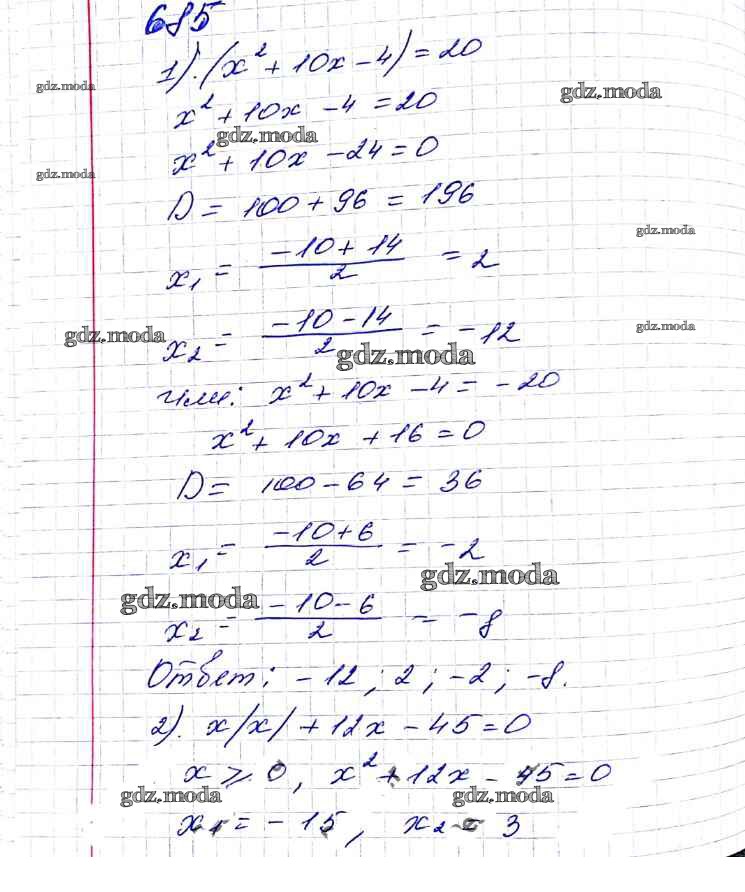 685
1). (x² + 10x - 4) = 20
gdz.moda
gdz.moda
x² + 10x - 4 = 20
gdz.moda
x² + 10x - 24 = 0
gdz.moda
D = 100 + 96 = 196
gdz.moda
x₁ = (-10 + 14)/2 = 2
gdz.moda
gdz.moda
x₂ = (-10 - 14)/2 = -12
gdz.moda
или: x² + 10x - 4 = -20
x² + 10x + 16 = 0
D = 100 - 64 = 36
x₁ = (-10 + 6)/2 = -2
gdz.moda
gdz.moda
x₂ = (-10 - 6)/2 = -8
Ответ: -12; 2; -2; -8.
2). x/x/ + 12x - 45 = 0
x ⩾ 0, x² + 12x - 45 = 0
gdz.moda
gdz.moda
x₁ = -15, x₂ = 3